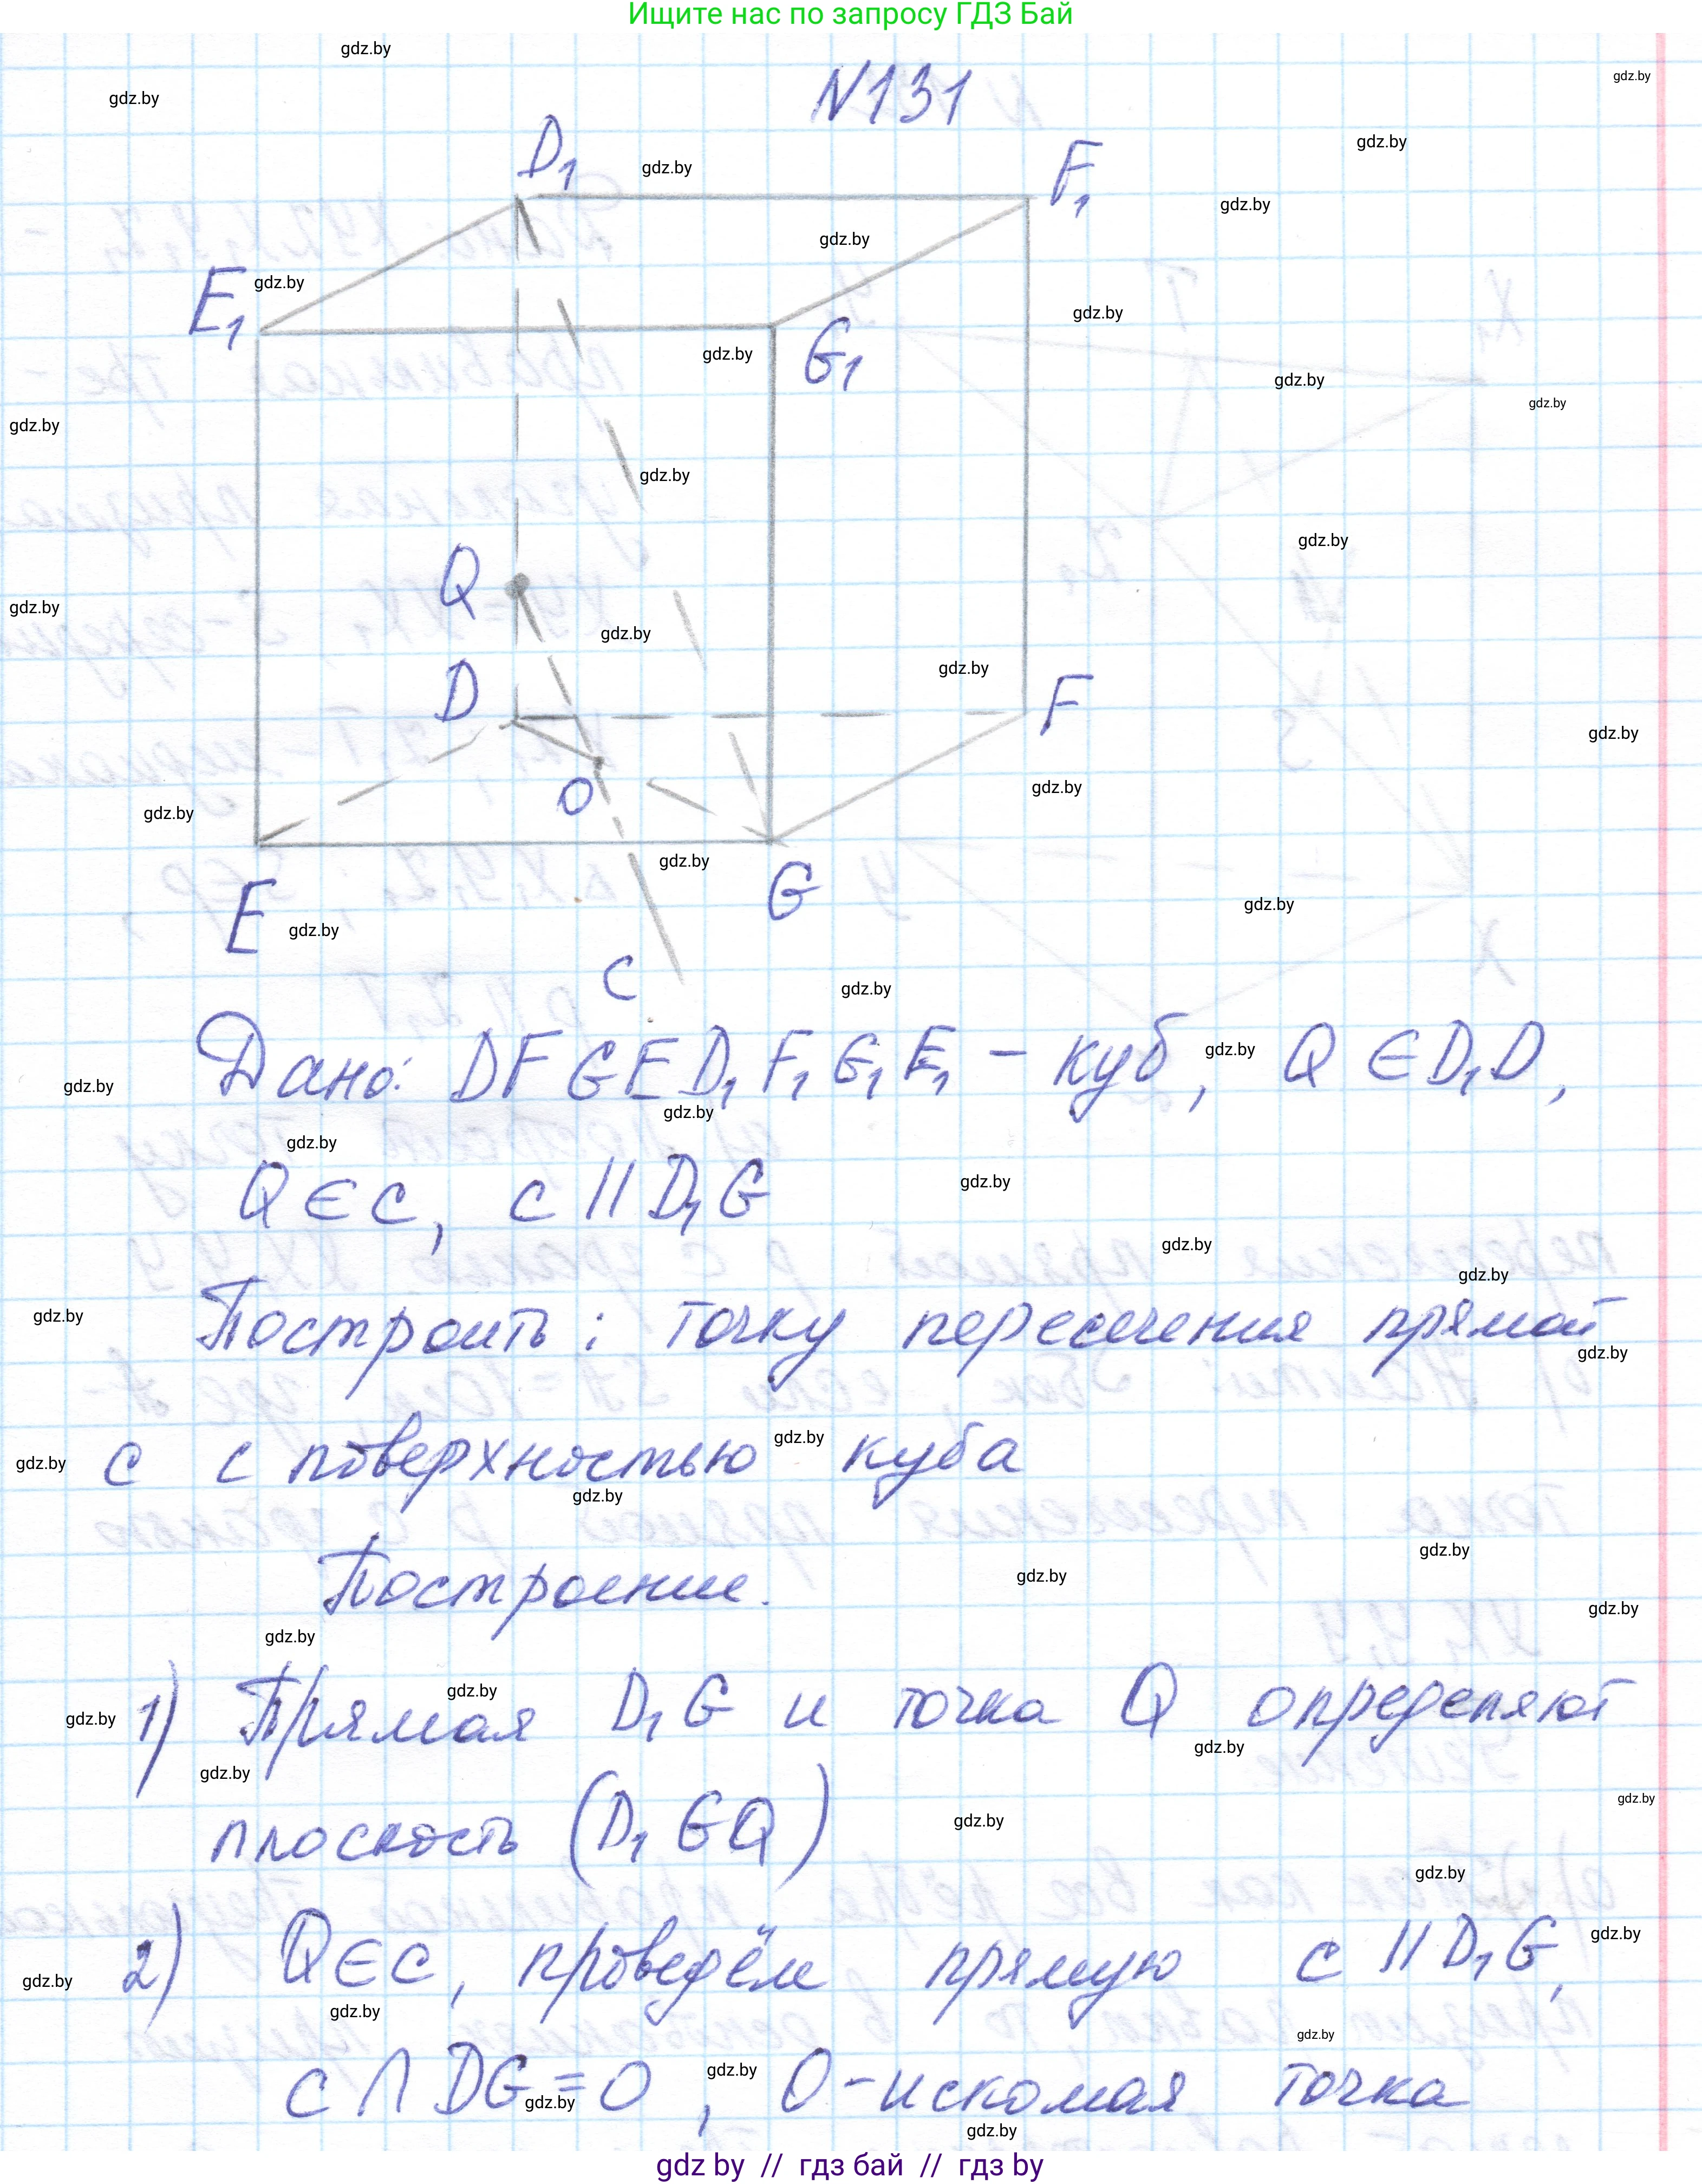 Ищите нас по запросу ГДЗ Бай
N131
D₁
F₁
E₁
G₁
Q
D
F
O
E
G
c
Дано: DFGED₁F₁G₁E₁ - куб, Q ∈ D₁D,
Q ∈ c, c || D₁G
Построить: точку пересечения прямой
c с поверхностью куба
Построение.
1) Прямая D₁G и точка Q определяют
плоскость (D₁GQ)
2) Q ∈ c, проведём прямую c || D₁G,
c ∩ DG = O, O - искомая точка
gdz by // гдз бай // гдз by